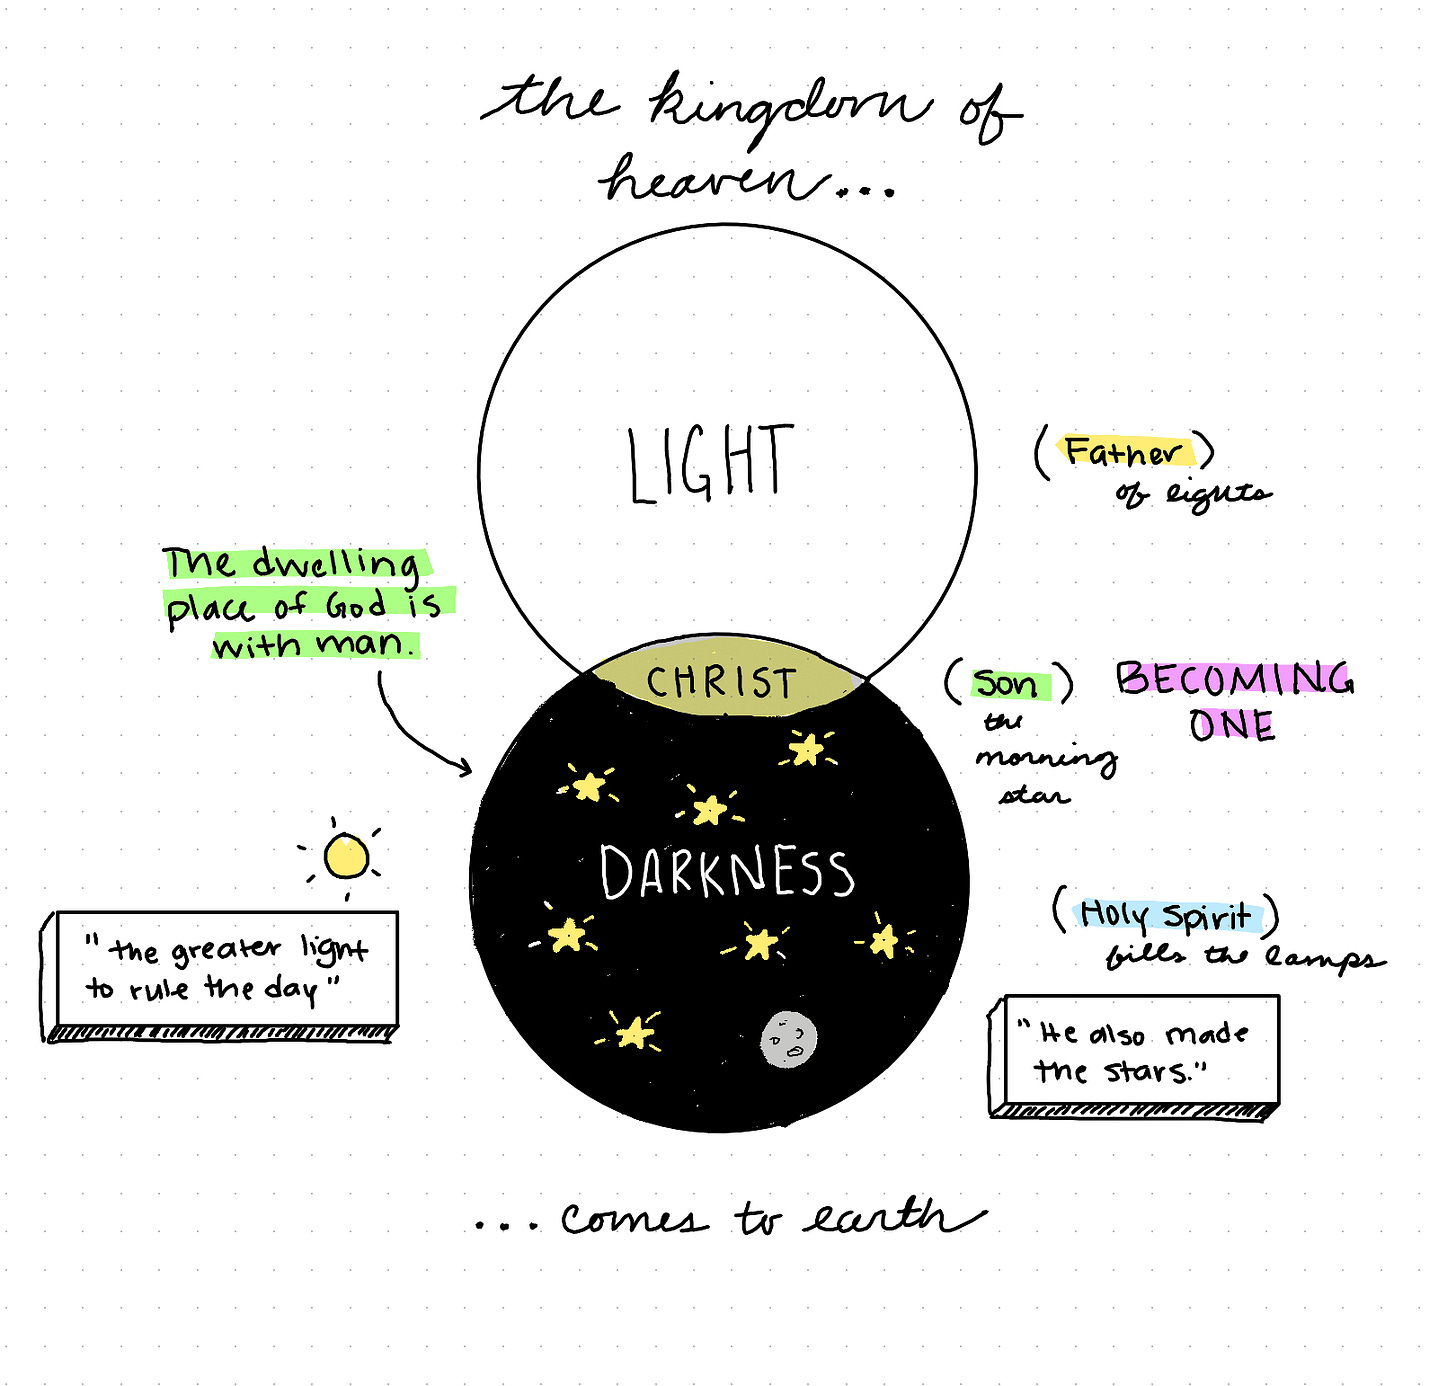 the kingdom of
heaven...
LIGHT
(Father)
of lights
The dwelling
place of God is
with man.
CHRIST
(Son)
the
morning
star
BECOMING
ONE
DARKNESS
"the greater light
to rule the day"
(Holy Spirit)
fills the lamps
"He also made
the stars."
...comes to earth